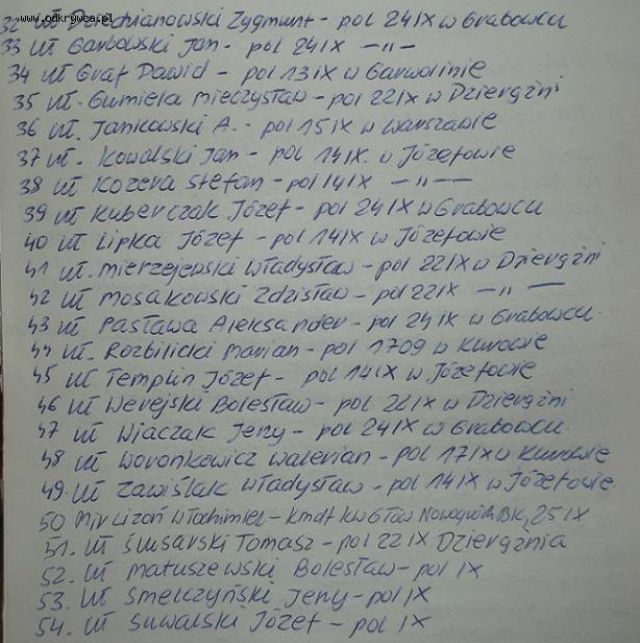 www.odkrywca.pl
32 uł Dziedzianowski Zygmunt - pol 24 IX w Grabowcu
33 uł Garbowski Jan - pol 24 IX —"—
34 uł Graf Dawid - pol 13 IX w Garwolinie
35 uł. Gumiela Mieczysław - pol 22 IX w Dzierążni
36 uł. Jankowski A. - pol 15 IX w Warszawie
37 uł. Kowalski Jan - pol 14 IX. w Józefowie
38 uł Kozera Stefan - pol 14 IX —"—
39 uł Kuberczak Józef - pol 24 IX w Grabowcu
40 uł Lipka Józef - pol 14 IX w Józefowie
41 uł. Mierzejewski Władysław - pol 22 IX w Dzierążni
42 uł Mosakowski Zdzisław - pol 22 IX —"—
43 uł Pasława Aleksander - pol 24 IX w Grabowcu.
44 uł. Rozbilicki Marian - pol 1709 w Kurowie
45 uł Templin Józef - pol 14 IX w Józefowie
46 uł Werejski Bolesław - pol 22 IX w Dzierążni
47 uł Wiaczak Jerzy - pol 24 IX w Grabowcu.
48 uł Woronkiewicz Walerian - pol 17 IX w Kurowie
49. uł Zawiślak Władysław - pol 14 IX w Józefowie
50 Mjr Lizoń Włodzimierz - kmdt kw Gł 25 IX
51. uł Ślusarski Tomasz - pol 22 IX Dzierążnia
52. uł Matuszewski Bolesław - pol IX
53. uł Smelczyński Jerzy - pol IX
54. uł Suwalski Józef - pol IX